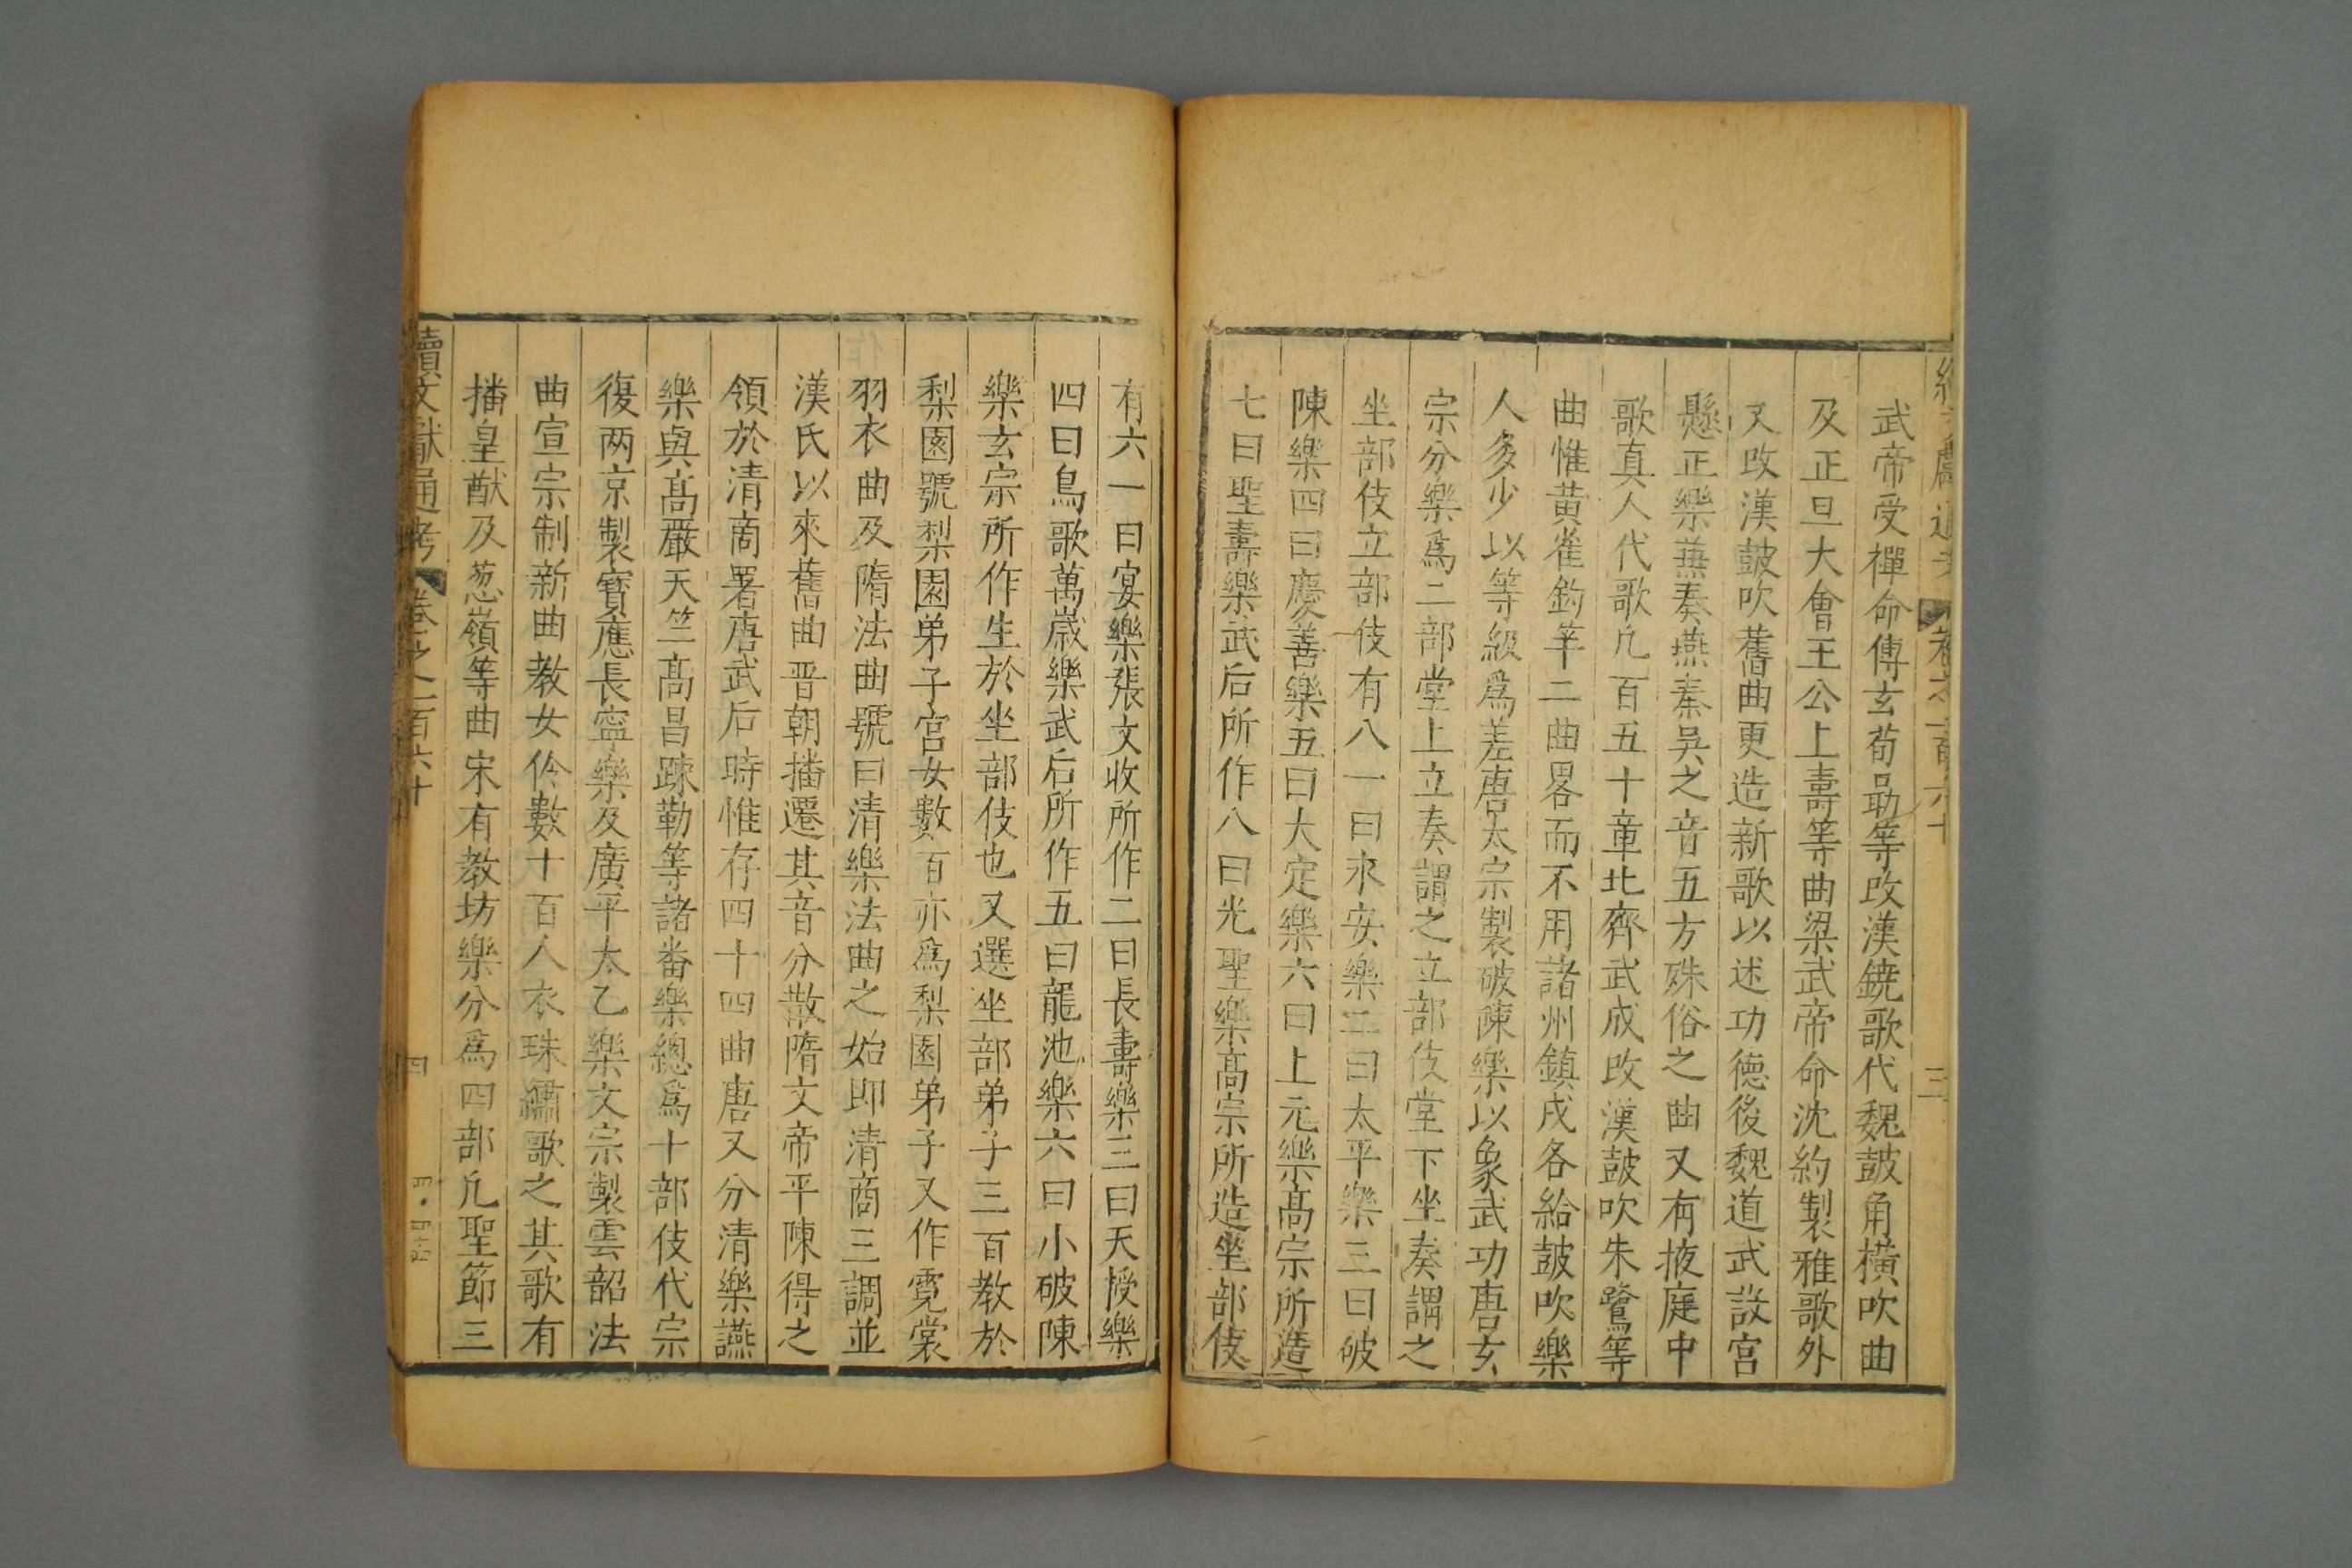 續文獻通考 卷之一百六十 三
武帝受禪命傅玄荀勗等改漢鐃歌代魏鼓角橫吹曲
及正旦大會王公上壽等曲梁武帝命沈約製雅歌外
又改漢鼓吹舊曲更造新歌以述功德後魏道武設宮
懸正樂蕪奏燕秦吳之音五方殊俗之曲又有掖庭中
歌真人代歌凢百五十章北齊武成改漢鼓吹朱鷺等
曲惟黃雀釣竿二曲畧而不用諸州鎮戍各給鼓吹樂
人多少以等級爲差唐太宗製破陳樂以象武功唐玄
宗分樂爲二部堂上立奏謂之立部伎堂下坐奏謂之
坐部伎立部伎有八一曰永安樂二曰太平樂三曰破
陳樂四曰慶善樂五曰大定樂六曰上元樂髙宗所造
七曰聖壽樂武后所作八曰光聖樂髙宗所造坐部伎
有六一曰宴樂張文收所作二曰長壽樂三曰天授樂
四曰鳥歌萬歲樂武后所作五曰龍池樂六曰小破陳
樂玄宗所作生於坐部伎也又選坐部弟子三百教於
梨園號梨園弟子宮女數百亦爲梨園弟子又作霓裳
羽衣曲及隋法曲號曰清樂法曲之始即清商三調並
漢氏以來舊曲晋朝播遷其音分散隋文帝平陳得之
領於清商署唐武后時惟存四十四曲唐又分清樂讌
樂與髙嚴天竺髙昌踈勒等諸番樂總爲十部伎代宗
復两京製寳應長寧樂及廣平太乙樂文宗製雲韶法
曲宣宗制新曲教女伶數十百人衣珠繡歌之其歌有
播皇猷及葱嶺等曲宋有教坊樂分爲四部凢聖節三
續文獻通考 卷之一百六十 四